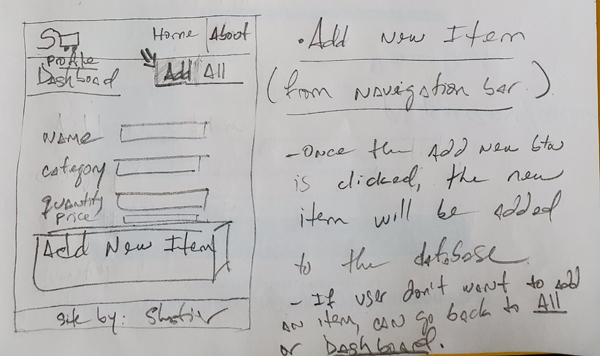 Home About
Profile
Dashboard
Add All
Name
Category
Quantity
Price
Add New Item
site by:
• Add New Item
(from navigation bar)
- Once the Add New btn
is clicked, the new
item will be added
to the database.
- If user don't want to add
an item, can go back to All
or Dashboard.